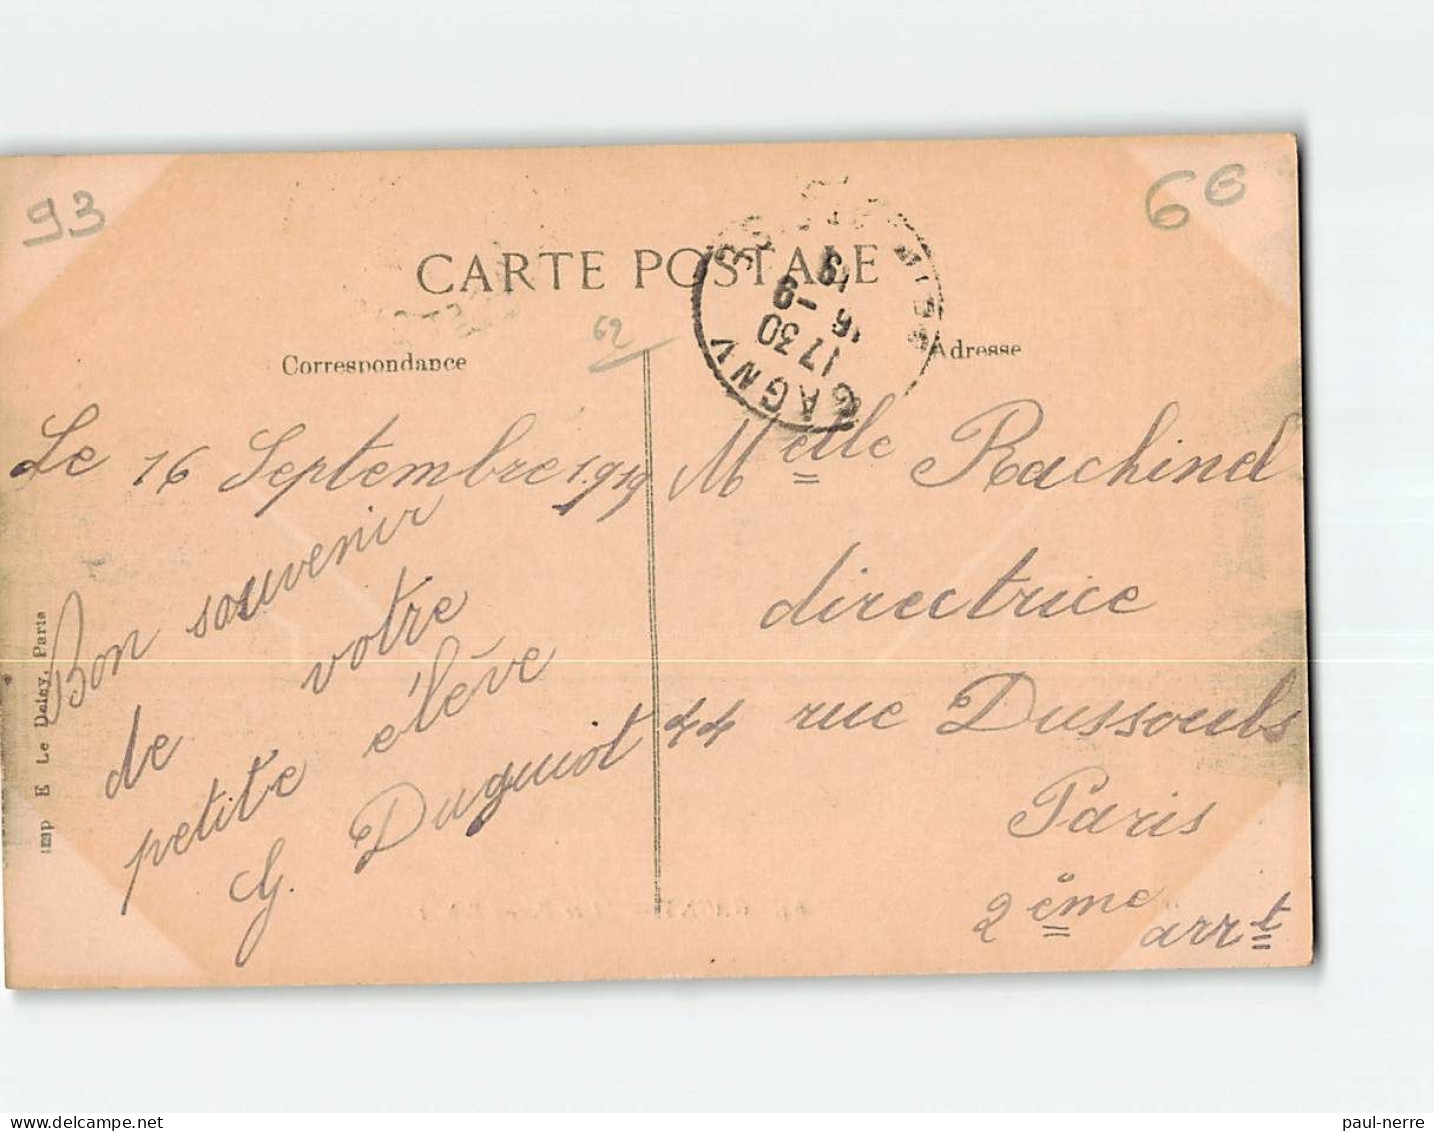 93
6€
CARTE POSTALE
62
Correspondance
Adresse
GAGNY
17 30
16 - 9
19
SEINE & OISE
Le 16 Septembre 1919
Bon souvenir
de votre
petite elève
G. Duguiot
Melle Rachinel
directrice
44 rue Dussoubs
Paris
2ème arrt
Imp E Le Deley, Paris
paul-nerre